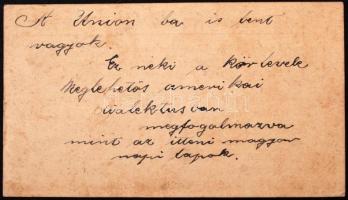 A Union ba is bent
vagyok.
Ez neki a körlevele
Meglehetős amerikai
dialektusban
megfogalmazva
mint az itteni magyar
napi lapok.